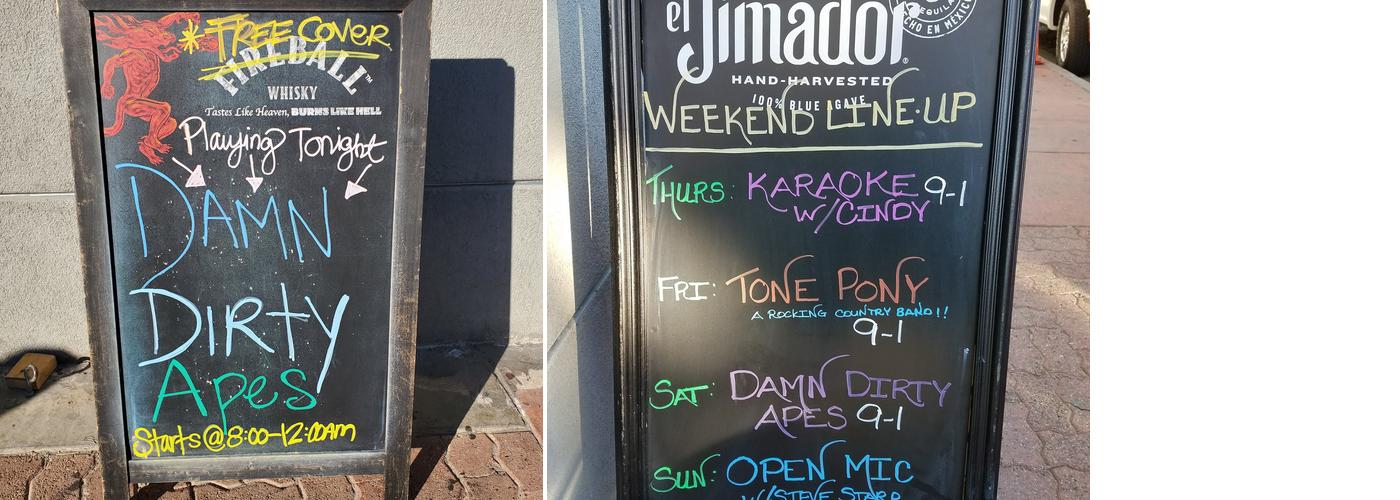 * FREE COVER
FIREBALL™
WHISKY
Tastes Like Heaven, BURNS LIKE HELL
Playing Tonight
DAMN
DIRTY
Apes
Starts @ 8:00-12:00AM
el Jimador®
TEQUILA
HECHO EN MÉXICO
HAND-HARVESTED
100% BLUE AGAVE
WEEKEND LINE-UP
THURS: KARAOKE 9-1
W/CINDY
FRI: TONE PONY
A ROCKING COUNTRY BAND!!
9-1
SAT: DAMN DIRTY
APES 9-1
SUN: OPEN MIC
W/STEVE STARR